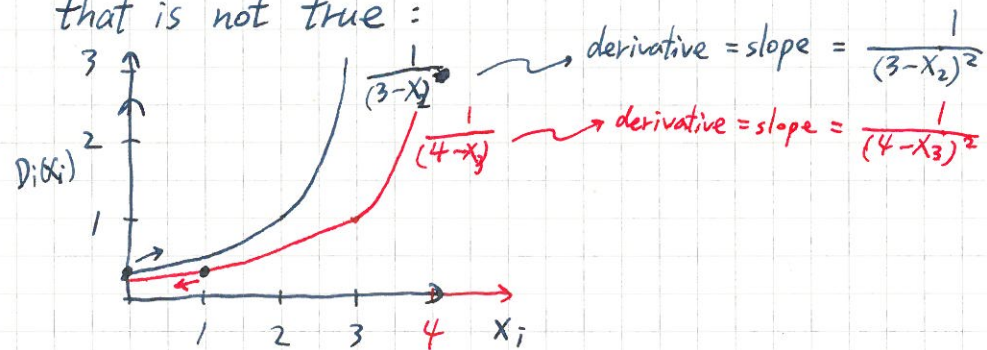 that is not true :
3
1/(3-x₂) derivative = slope = 1/(3-x₂)²
2
1/(4-x₃) derivative = slope = 1/(4-x₃)²
Dᵢ(xᵢ)
1
1 2 3 4 xᵢ